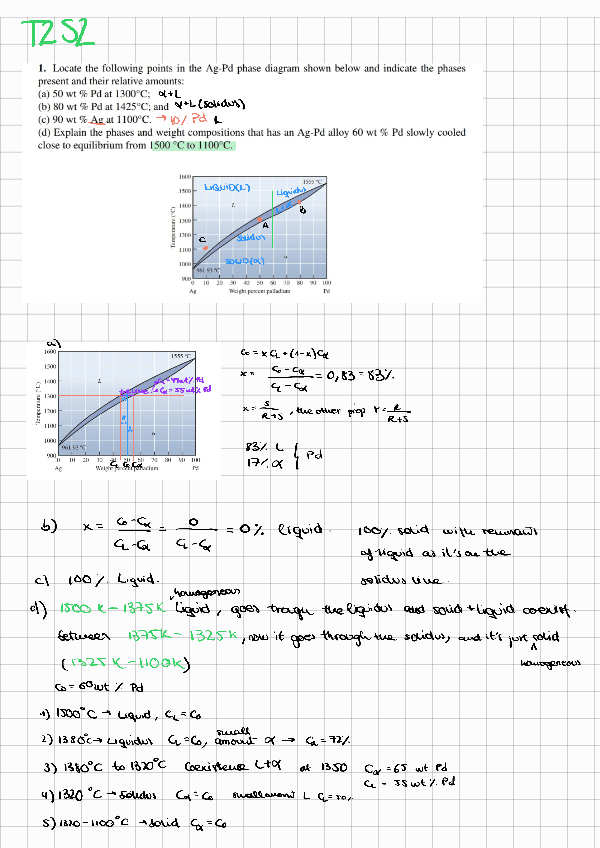 T2S2
1. Locate the following points in the Ag-Pd phase diagram shown below and indicate the phases
present and their relative amounts:
(a) 50 wt % Pd at 1300°C; α+L
(b) 80 wt % Pd at 1425°C; and α+L (solidus)
(c) 90 wt % Ag at 1100°C. → 10% Pd L
(d) Explain the phases and weight compositions that has an Ag-Pd alloy 60 wt % Pd slowly cooled
close to equilibrium from 1500 °C to 1100°C.
1600
1500
1400
1300
1200
1100
1000
900
Temperature (°C)
LIQUID(L)
Liquidus
1555 °C
L
B
A
C
Solidus
SOLID(α)
α
961.93 °C
0 10 20 30 40 50 60 70 80 90 100
Ag Weight percent palladium Pd
a)
1600
1500
1400
1300
1200
1100
1000
900
Temperature (°C)
1555 °C
L
wt% Pd
= 55 wt% Pd
R
α
961.93 °C
0 10 20 30 40 50 60 70 80 90 100
CL C0 Cα
Ag Weight percent palladium Pd
C0 = x CL + (1-x) Cα
x = (C0 - Cα)/(CL - Cα) = 0,83 = 83%
x = S/(R+S), the other prop Y = R/(R+S)
83% L
17% α
Pd
b) x = (C0 - Cα)/(CL - Cα) = 0/(CL - Cα) = 0% liquid. 100% solid with remnants
of liquid as it's on the
solidus line.
c) 100% Liquid.
homogeneous
d) 1500 K - 1375 K Liquid, goes trough the liquidus and solid + liquid coexist.
between 1375K - 1325K, now it goes through the solidus, and it's just solid
homogeneous
(1325 K - 1100K)
C0 = 60 wt % Pd
1) 1500°C → Liquid, CL = C0
2) 1380°C → Liquidus CL = C0, small amount α → Cα = 72%
3) 1380°C to 1320°C Coexistence L+α at 1350 Cα = 65 wt Pd
CL = 55 wt% Pd
4) 1320 °C → Solidus Cα = C0 small amount L CL = 50%
5) 1320 - 1100°C → solid Cα = C0